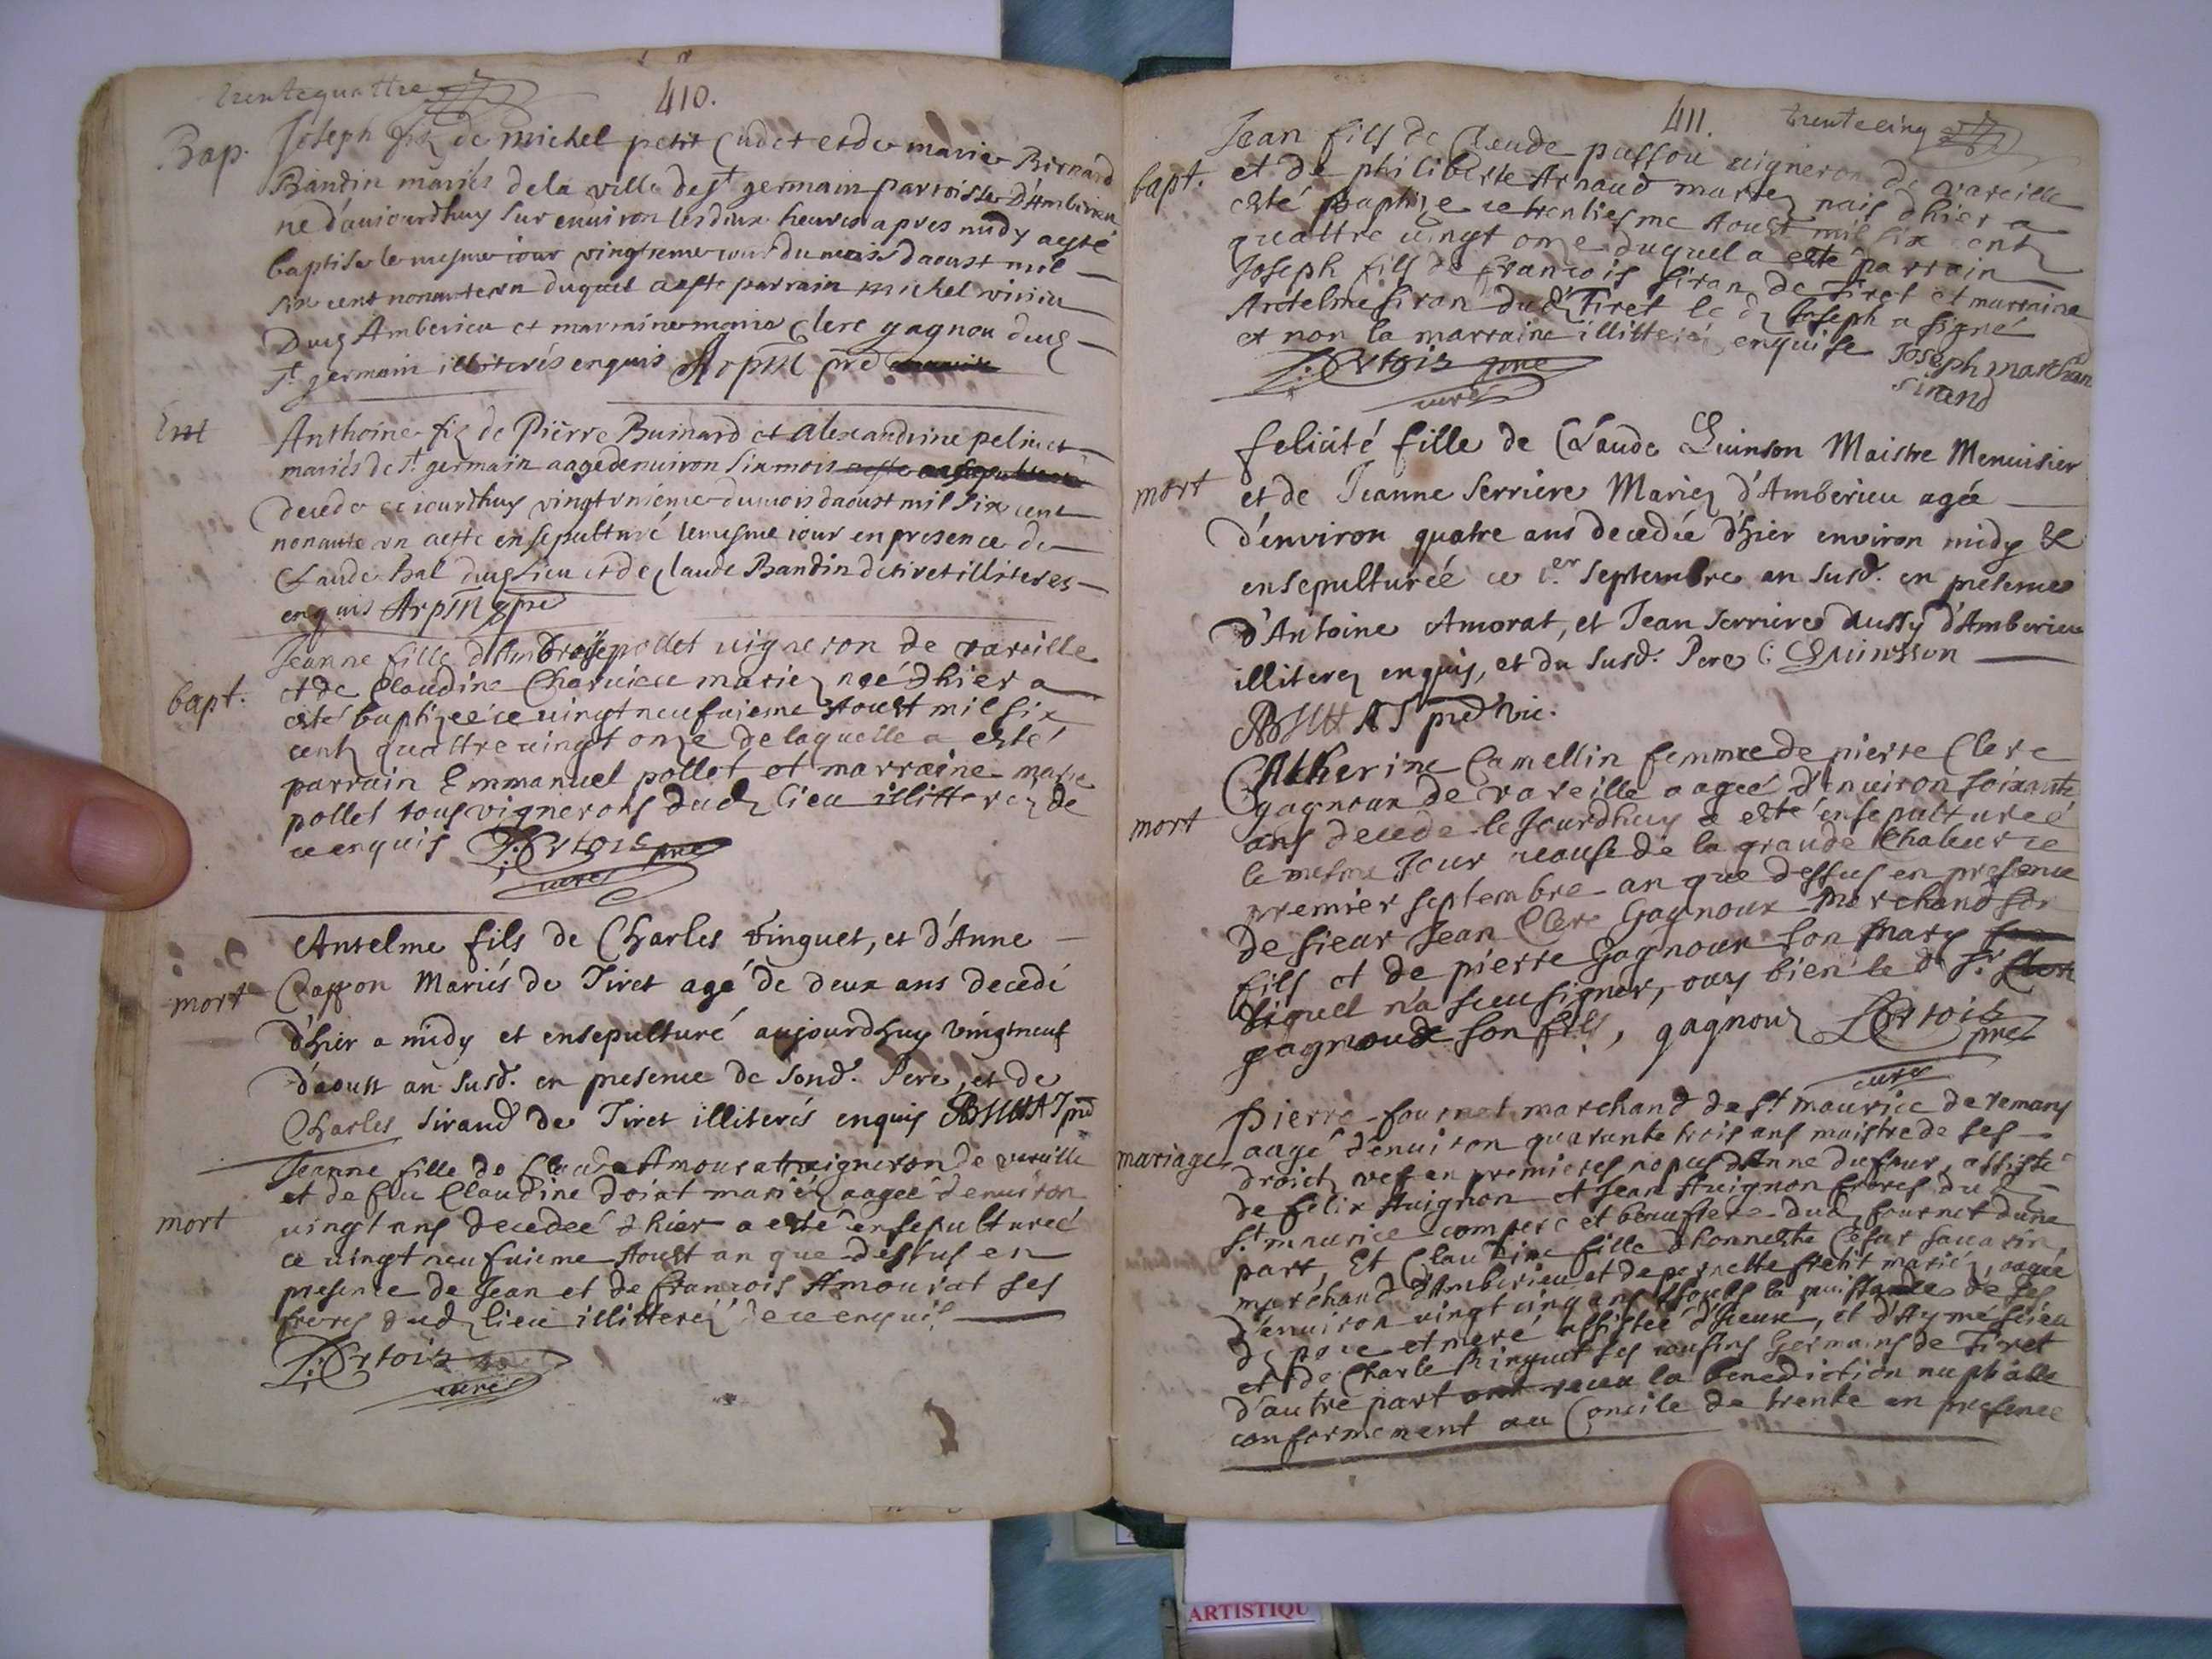 trentequattre
410.
Bap. Joseph fiz de Michel petit Cudet et de marie Bernard
Bandin mariés de la ville de st germain parroisse D'Amberieu
ne d'auiourdhuy sur enuiron les deux heures apres midy aesté
baptise le mesme iour vingtieme iour du mois daoust mil
six cent nonante vn duquel a este parrain michel
Dud Amberieu et marraine marie Clerc gagnou dud
st germain illiterés enquis Arpin pre
Ent Anthoine fiz de Pierre Buinard et Alexandrine pelinet
mariés de st germain aage denuiron six mois
decede ce iourdhuy vingtvnieme du mois daoust mil six cent
nonante vn aeste ensepulturé le mesme iour en presence de
Claude Bal dud Lieu et de Claude Bandin de tiret illiteres
enquis Arpin pre
bapt. Jeanne fille d'Ambroise pollet uigneron de vareille
et de Claudine Charuieu mariez neé dhier a
esté baptizeé ce uingtneufuieme Aoust mil six
centz quattre uingt onze de laquelle a esté
parrain Emmanuel pollet et marraine marie
pollet tous vignerons dud lieu illitterez de
ce enquis J: Ertois pre
curé
mort Antelme fils de Charles Tinguet, et d'Anne
Cappon Mariés de Tiret agé de deux ans decedé
d'hier a midy et ensepulturé aujourdhuy vingtneuf
d'aoust an susd. en presence de sond. Pere, et de
Charles Sirand de Tiret illiterés enquis pre
mort Jeanne fille de Claude Amourat uigneron de vareille
et de feu Claudine doirat mariéz aageé denuiron
uingt ans decedeé dhier a esté ensepultureé
ce uingt neufuieme Aoust an que dessus en
presence de Jean et de francois Amourat ses
freres dud lieu illitterez de ce enquis
J: Ertois
curé
411. trentecinq
bapt. Jean fils de Claude passou uigneron de vareille
et de philiberte Arnaud mariez nais dhier a
esté baptize ce trentiesme Aoust mil six centz
quattre uingt onze duquel a esté parrain
Joseph fils de francois siran de tiret et marraine
Antelme siran dud Tiret le d Joseph a signé
et non la marraine illitteré enquise Joseph marchan
sirand
J: Ertois pre
curé
mort felicité fille de Claude Quinson Maistre Menuisier
et de Jeanne Serriere Mariez d'Amberieu agée
d'environ quatre ans decedée d'hier environ midy &
ensepulturéé ce 1.er Septembre an susd. en presence
d'Antoine Amorat, et Jean Serriere aussy d'Amberieu
illiterez enquis, et du susd. Pere C: Quinsson
pre vic.
mort Catherine Camellin femme de pierre Clerc
gagnoux de vareille aageé d'enuiron soixante
ans decedé le Jourdhuy a esté ensepultureé
le mesme Jour acause de la grande Chaleur ce
premier septembre an que dessus en presence
de sieur Jean Clerc Gagnoux Marchand son
fils et de pierre Gagnoux son mary
liquel n'a sceu signer, ouy bien le d sr
gagnoux son fils, gagnouz Ertois
pre
curé
mariage Pierre fournet marchand de st maurice de remans
aagé denuiron quarante trois ans maistre de ses
droictz vef en premieres nopces d'Anne dufour, assisté
de felix Auignon et Jean Auignon freres du d
st maurice compere et beaufrere dud fournet dune
part, Et Claudine fille d'honneste Cesar sauarin,
marchand d'Amberieu et de pernette pretit mariéz, aagée
d'enuiron uingt cinq ans soubs la puissance de ses
d pere et mere assistée d'iceux, et d'Aymé
et de Charle Tinguet ses cousins Germains de Tiret
d'autre part ont receu la benediction nuptialle
conformement au Concile de trente en presence
ARTISTIQU